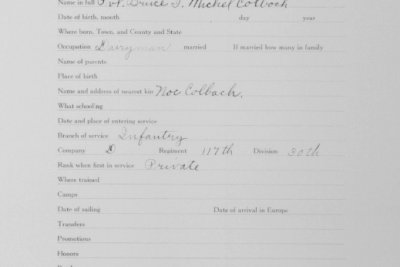 Name in full Pvt. Bruce T. Michel Colboch
Date of birth, month day year
Where born, Town, and County and State
Occupation Dairyman married If married how many in family
Name of parents
Place of birth
Name and address of nearest kin Noc Colbach.
What schooling
Date and place of entering service
Branch of service Infantry
Company D Regiment 117th Division 30th
Rank when first in service Private
Where trained
Camps
Date of sailing Date of arrival in Europe
Transfers
Promotions
Honors